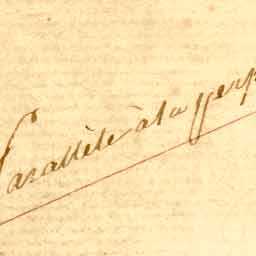 Parallele à la perp